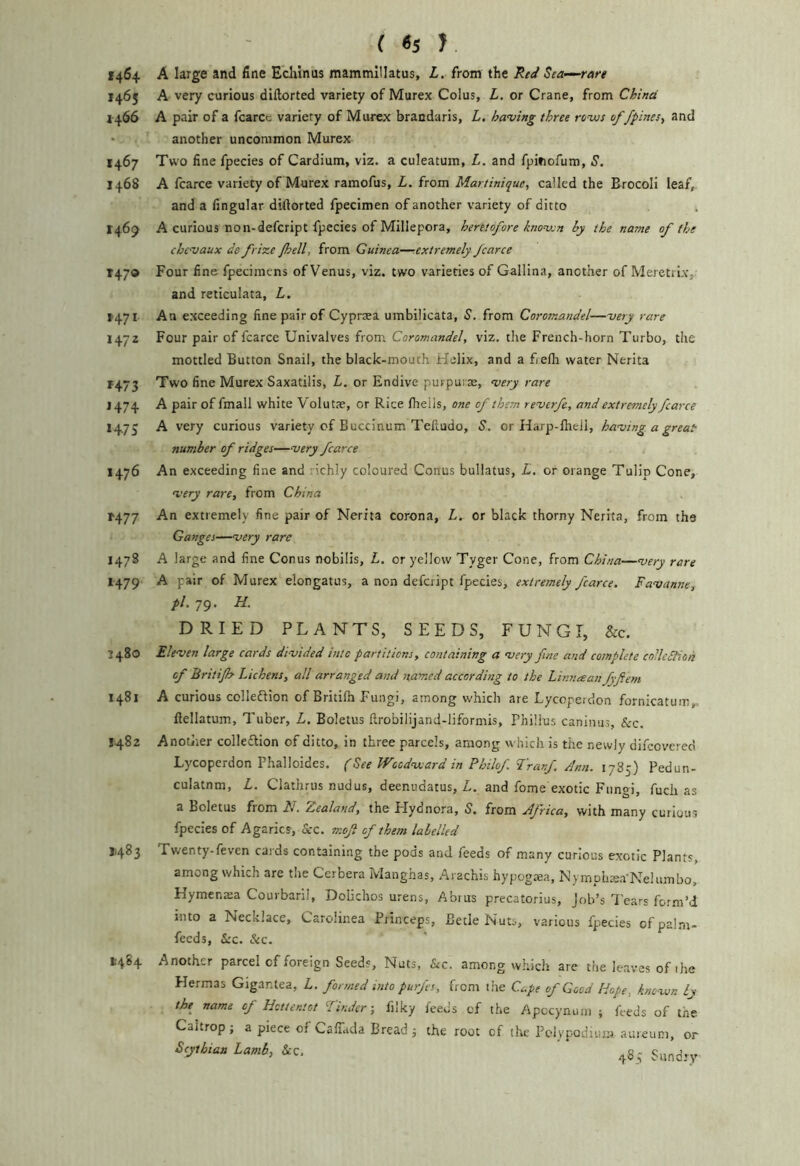 ( 65 )
1464 A large and fine Echinus mammillatus, L. from the Red Sea—rare
1465 A very curious diſtorted variety of Murex Colus, L. or Crane, from China
1466 A pair of a ſcarce variety of Murex brandaris, L. having three rows of ſpines, and
another uncommon Murex
1467 Two fine ſpecies of Cardium, viz. a culeatum, L. and ſpinoſum, S.
1468 A ſcarce variety of Murex ramoſus, L. from Martinique, called the Brocoli leaf,
and a ſingular diſtorted ſpecimen of another variety of ditto
1469 A curious non-deſcript ſpecies of Millepora, heretofore known by the name of the
chevaux de frize ſhell, from Guinea—extremely ſcarce
1470 Four fine ſpecimens of Venus, viz. two varieties of Gallina, another of Meretrix,
and reticulata, L.
1471 An exceeding fine pair of Cypræa umbilicata, S. from Coromandel—very rare
1472 Four pair of ſcarce Univalves from Coromandel, viz. the French-horn Turbo, the
mottled Button Snail, the black-mouth Helix, and a freſh water Nerita
1473 Two fine Murex Saxatilis, L. or Endive purpuræ, very rare
1474 A pair of ſmall white Volutæ, or Rice ſhells, one of them reverſe, and extremely ſcarce
1475 A very curious variety of Buccinum Teſtudo, S. or Harp-ſhell, having a great
number of ridges—very ſcarce
1476 An exceeding fine and richly coloured Conus bullatus, L. or orange Tulip Cone,
very rare, from China
1477 An extremely fine pair of Nerita corona, L. or black thorny Nerita, from the
Ganges—very rare
1478 A large and fine Conus nobilis, L. or yellow Tyger Cone, from China—very rare
1479 A pair of Murex elongatus, a non deſcript ſpecies, extremely ſcarce. Favanne,
pl. 79. H.
DRIED PLANTS, SEEDS, FUNGI, &c.
1480 Eleven large cards divided into partitions, containing a very fine and complete collection
of Britiſh Lichens, all arranged and named according to the Linnæan ſyſtem
1481 A curious collection of Britiſh Fungi, among which are Lycoperdon fornicatum,
ſtellatum, Tuber, L. Boletus ſtrobilijand-liformis, Phillus caninus, &c.
1482 Another collection of ditto, in three parcels, among which is the newly diſcovered
Lycoperdon Phalloides. (See Woodward in Philoſ. Tranſ. Ann. 1785) Pedun-
culatnm, L. Clathrus nudus, deenudatus, L. and ſome exotic Fungi, ſuch as
a Boletus from N. Zealand, the Hydnora, S. from Africa, with many curious
ſpecies of Agarics, &c. moſt of them labelled
1483 Twenty-ſeven cards containing the pods and ſeeds of many curious exotic Plants,
among which are the Cerbera Manghas, Arachis hypogæa, Nymphæa Nelumbo,
Hymenæa Courbaril, Dolichos urens, Abrus precatorius, Job's Tears form'd
into a Necklace, Carolinea Princeps, Betle Nuts, various ſpecies of palm-
ſeeds, &c. &c.
1484 Another parcel of foreign Seeds, Nuts, &c. among which are the leaves of the
Hermas Gigantea, L. formed into purſes, from the Cape of Good Hope, known by
the name of Hottentot Tinder; ſilky ſeeds of the Apocynum; ſeeds of the
Caltrop; a piece of Caſſada Bread; the root of the Polypodium aureum, or
Scythian Lamb, &c.
485 Sundry